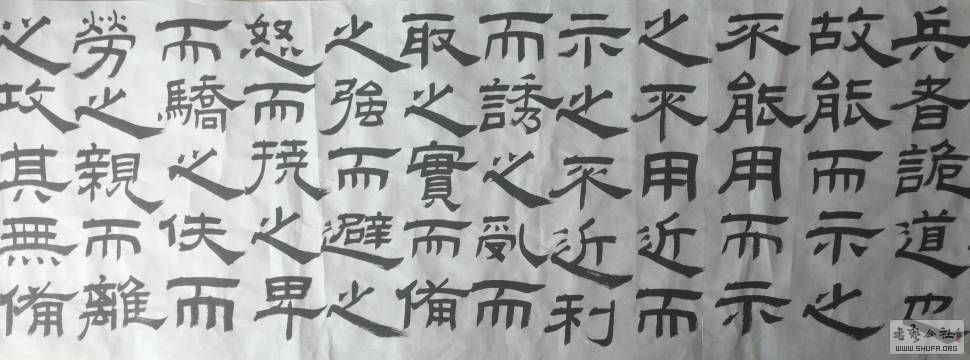 兵者詭道也
故能而示之
不能用而示
之不用近而
示之不近利
而誘之亂而
取之實而備
之強而避之
怒而撓之卑
而驕之佚而
勞之親而離
之攻其無備
WWW.SHUFA.ORG